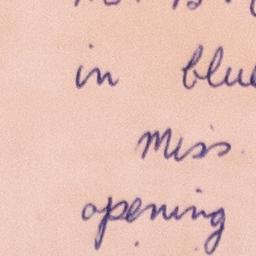 in blue
Miss.
opening